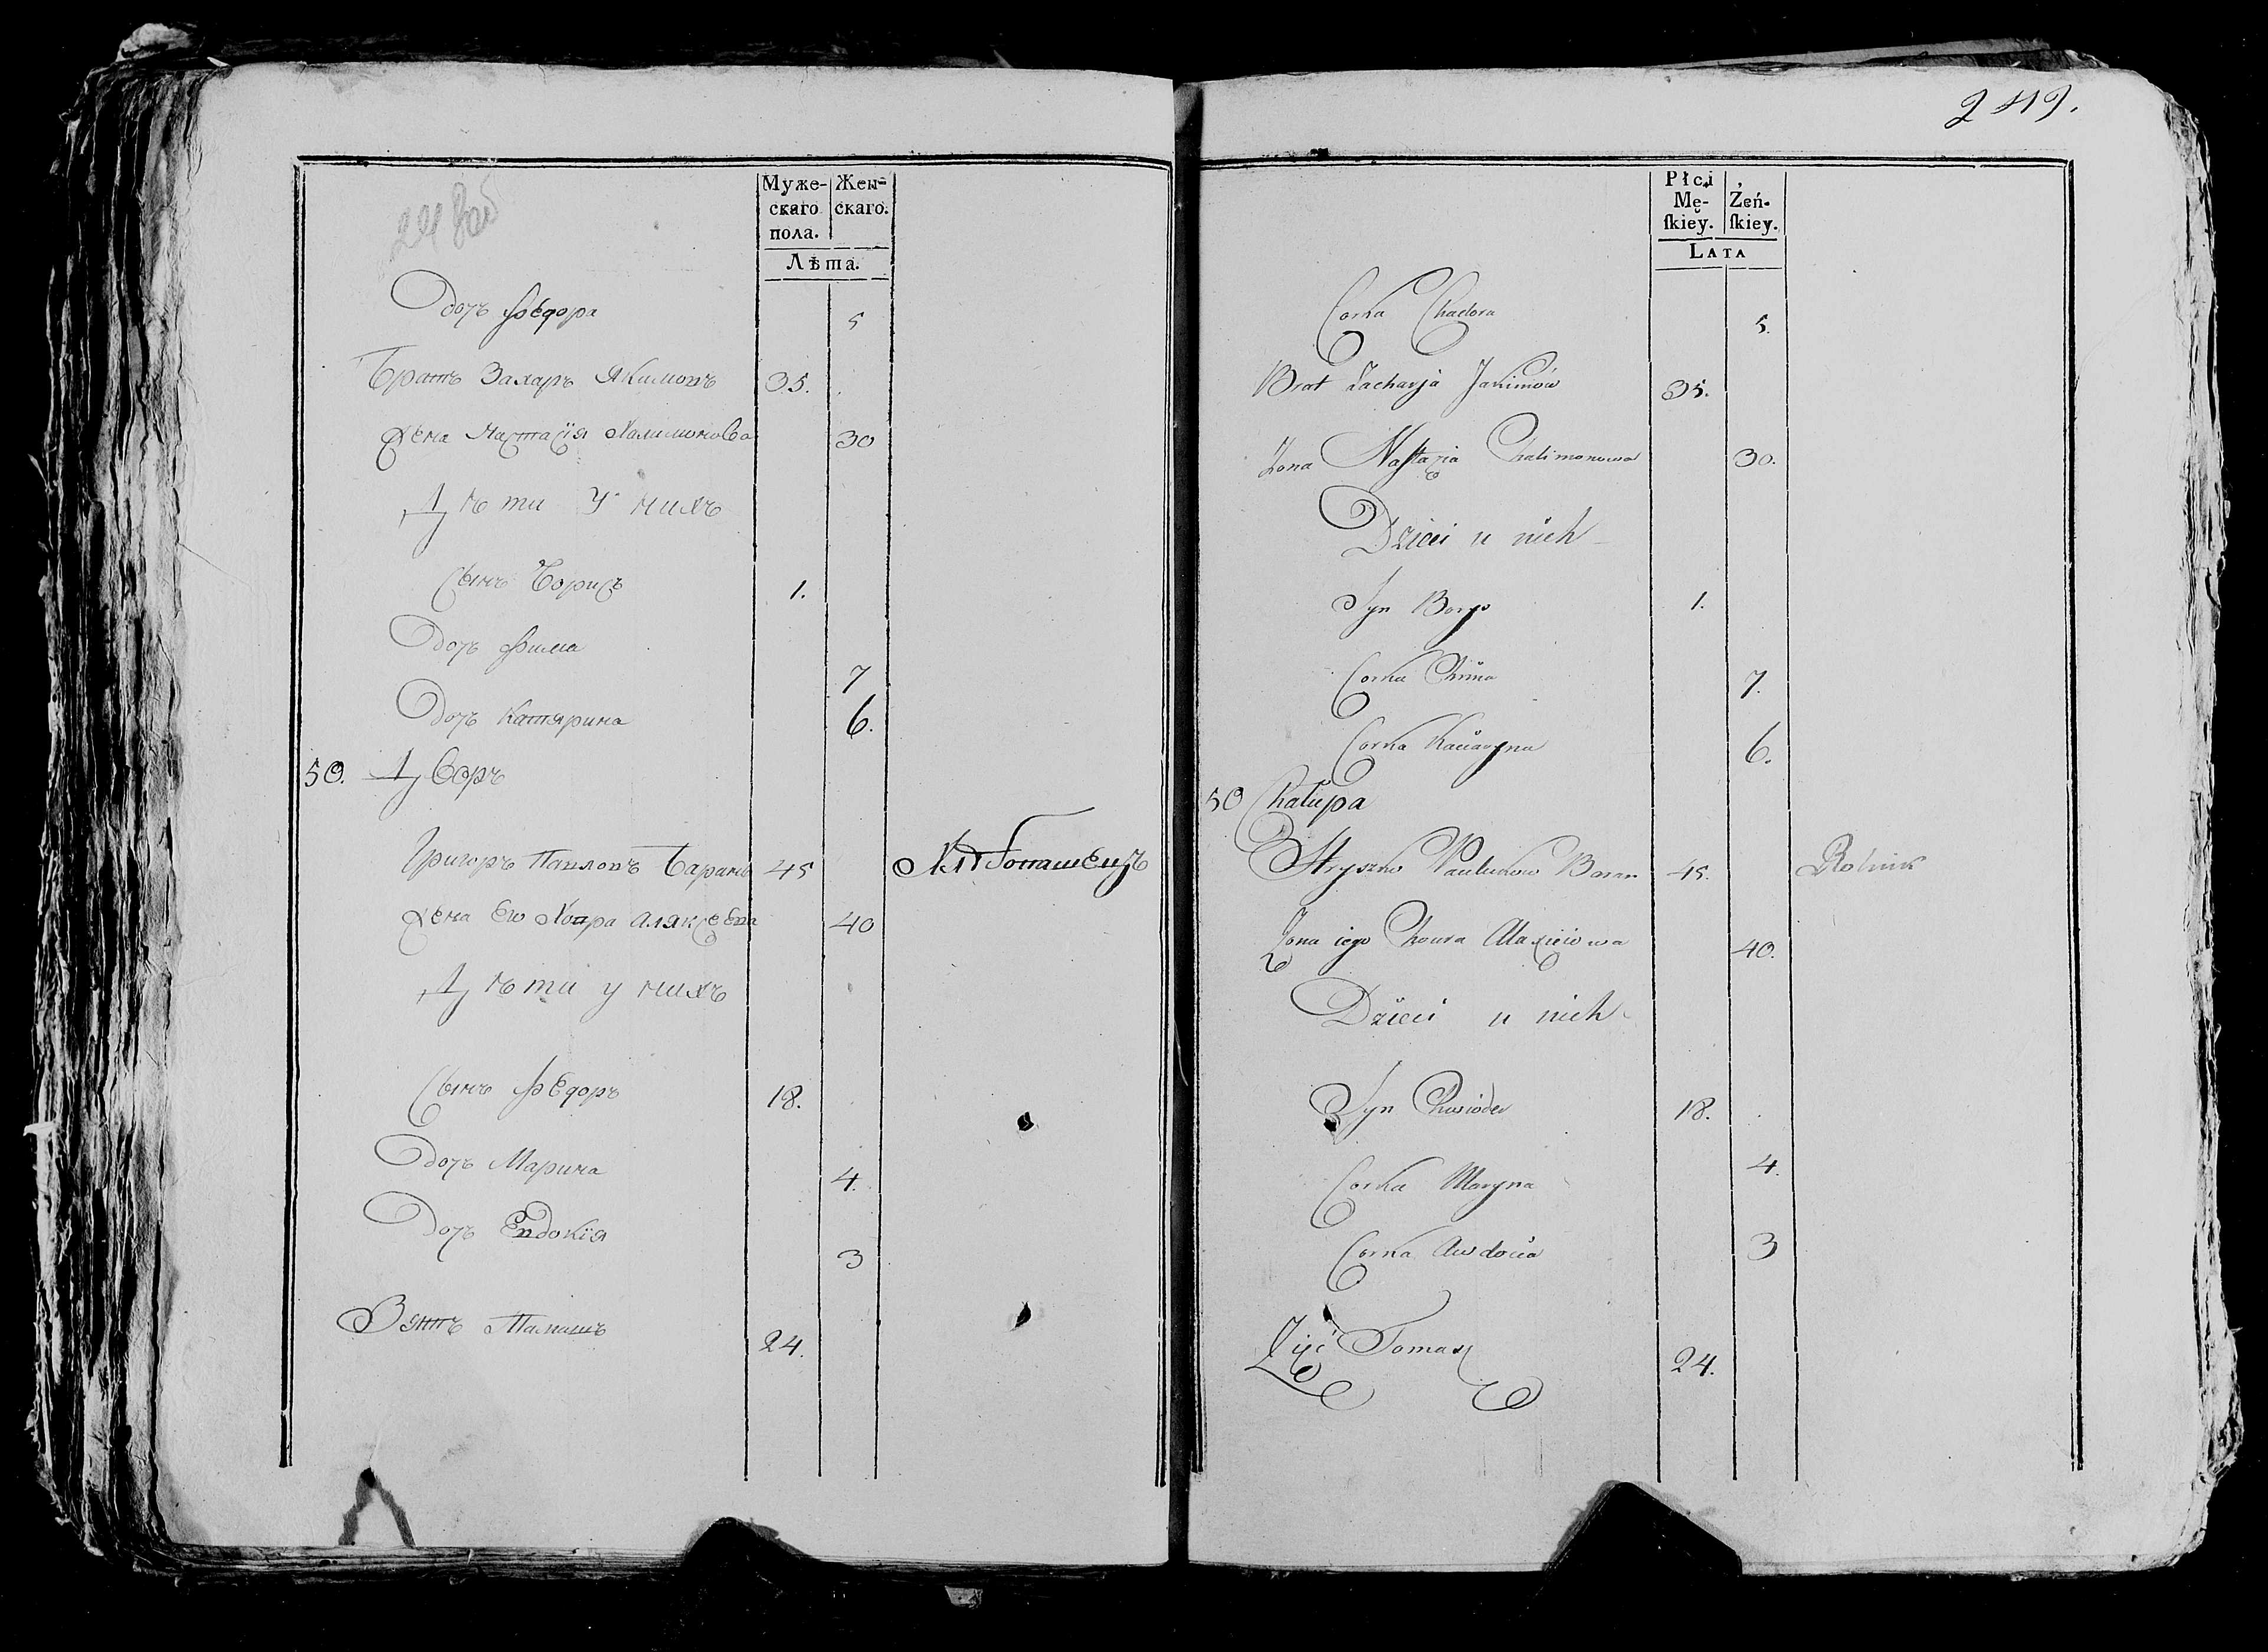 Муже-
скаго
пола.
Жен-
скаго.
Лѣта.
Дочь Федора 5
Братъ Захаръ Якимовъ 35.
Жена Настасїя Халимонова 30
Дѣти у нихъ
Сынъ Борисъ 1.
Дочь Фима 7
Дочь Катярина 6.
50. Дворъ
Григоръ Павловъ Баранъ 45 Хлѣбопашецъ
Жена ею Ховра Аляксеева 40
Дѣти у нихъ
Сынъ Федоръ 18.
Дочь Марина 4.
Дочь Евдокїя 3
Зять Тамашъ 24.
Płci
Mę-
ſkiey.
Żeń-
ſkiey.
LATA
Corka Chadora 5.
Brat Zacharja Jakimów 35.
Żona Nastazia Chalimonowa 30.
Dzieci u nich
Syn Borys 1.
Corka Chima 7.
Corka Kaciaryna 6.
50 Chałupa
Hryszko Paulukow Baran 45. Rolnik
Żona iego Chowra Alaxieiowa 40.
Dzieci u nich
Syn Chwiodor 18.
Corka Maryna 4.
Corka Awdocia 3
Zięć Tomasz 24.